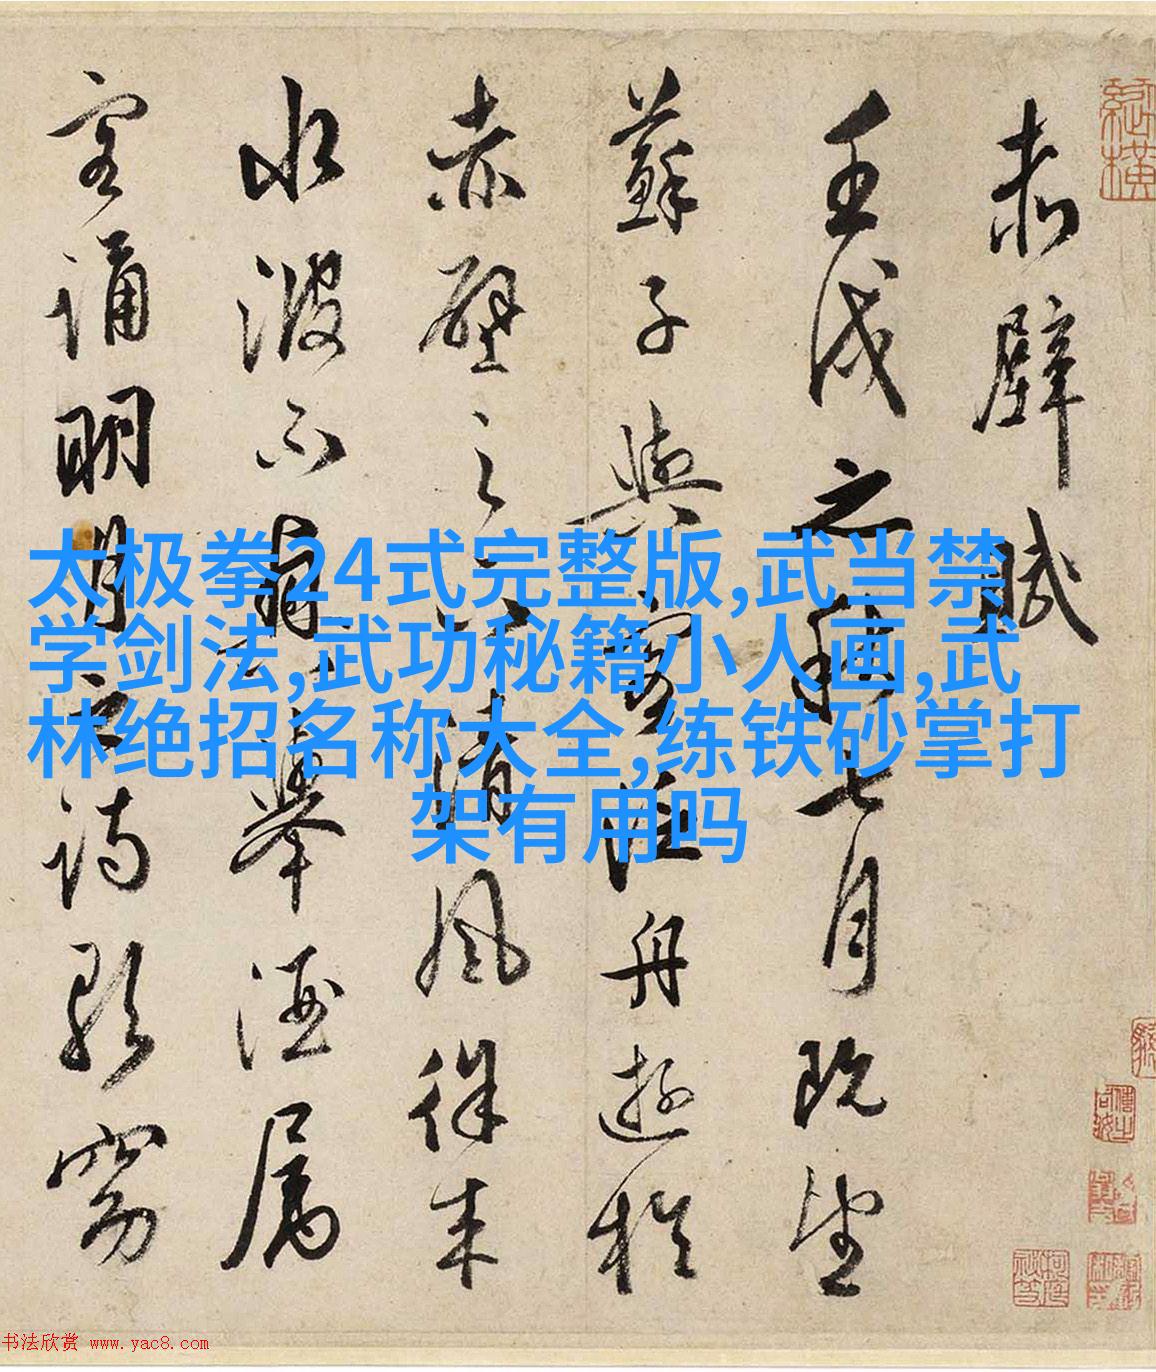 赤壁賦
壬戌之秋七月既望
蘇子與客泛舟遊於
赤壁之下清風徐来
水波不興舉酒属
客誦明月之詩歌窈
太极拳24式完整版,武当禁
学剑法,武功秘籍小人画,武
林绝招名称大全,练铁砂掌打
架有用吗
书法欣赏 www.yac8.com